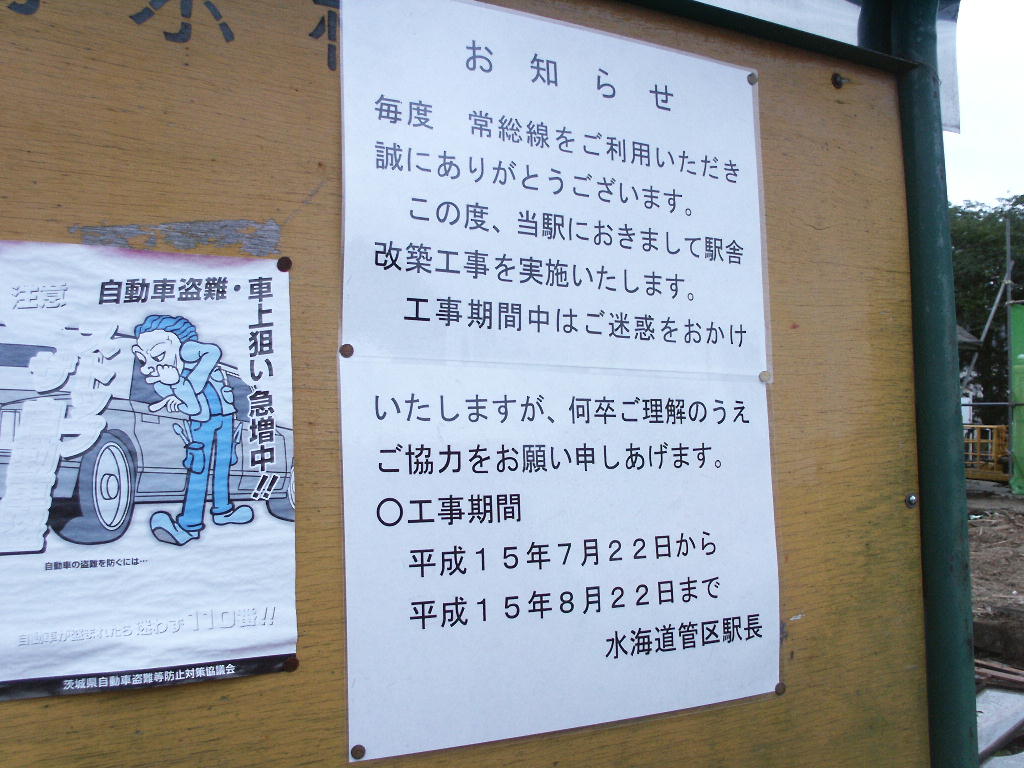 お知らせ
毎度　常総線をご利用いただき
誠にありがとうございます。
この度、当駅におきまして駅舎
改築工事を実施いたします。
工事期間中はご迷惑をおかけ
いたしますが、何卒ご理解のうえ
ご協力をお願い申しあげます。
〇工事期間
平成１５年７月２２日から
平成１５年８月２２日まで
水海道管区駅長
注意
自動車盗難・車上狙い急増中!!
自動車の盗難を防ぐには…
自動車が盗まれたら迷わず110番!!
茨城県自動車盗難等防止対策協議会